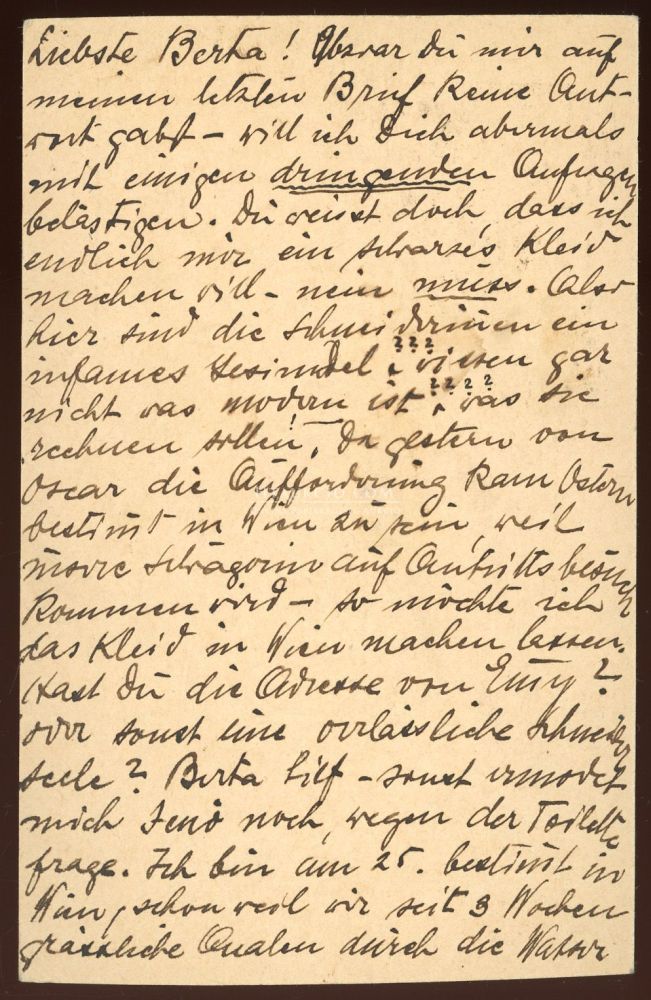 Liebste Berta! Obzwar Du mir auf
meinen letzten Brief keine Ant-
wort gabst – will ich Dich abermals
mit einigen dringenden Anfragen
belästigen. Du weisst doch, dass ich
endlich mir ein schwarzes Kleid
machen will – nein muss. Also
hier sind die Schneiderinnen ein
infames Gesindel, wissen gar ???
nicht was modern ist, was sie ????
rechnen sollen. Da gestern von
Oscar die Aufforderung kam Ostern
bestimt in Wien zu sein, weil
Schwägerin auf Antrittsbesuch
kommen wird – so möchte ich
das Kleid in Wien machen lassen.
Hast Du die Adresse von Emy?
oder sonst eine verlässliche Schneider
seele? Berta hilf – sonst ermordet
mich Jenö noch, wegen der Toilette
frage. Ich bin am 25. bestimt in
Wien, schon weil wir seit 3 Wochen
grässliche Qualen durch die Wasser